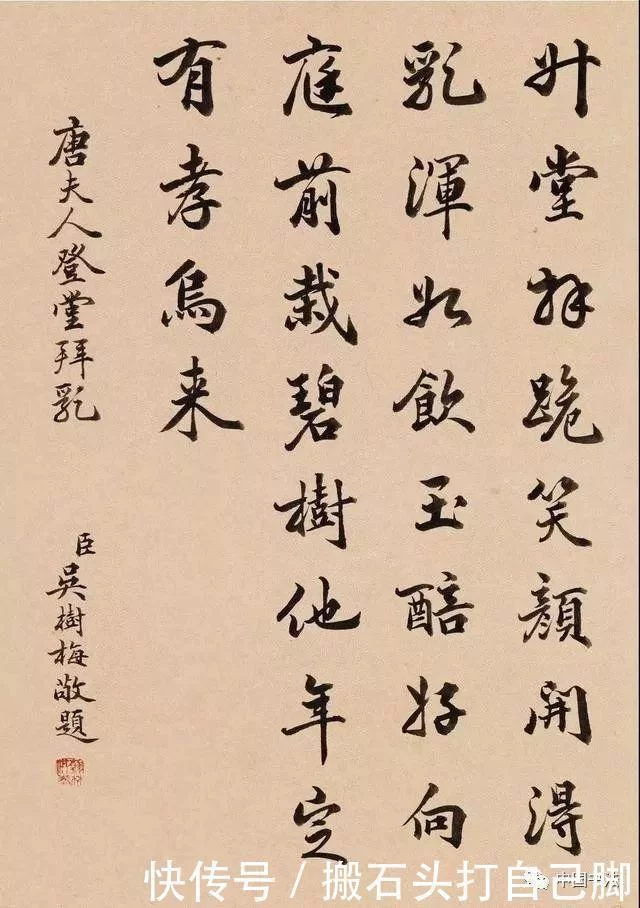 升堂拜跪笑顔開得
乳渾如飲玉醅好向
庭前栽碧樹他年定
有孝烏来
唐夫人登堂拜乳
臣吳樹梅敬題
快传号 / 搬石头打自己脚